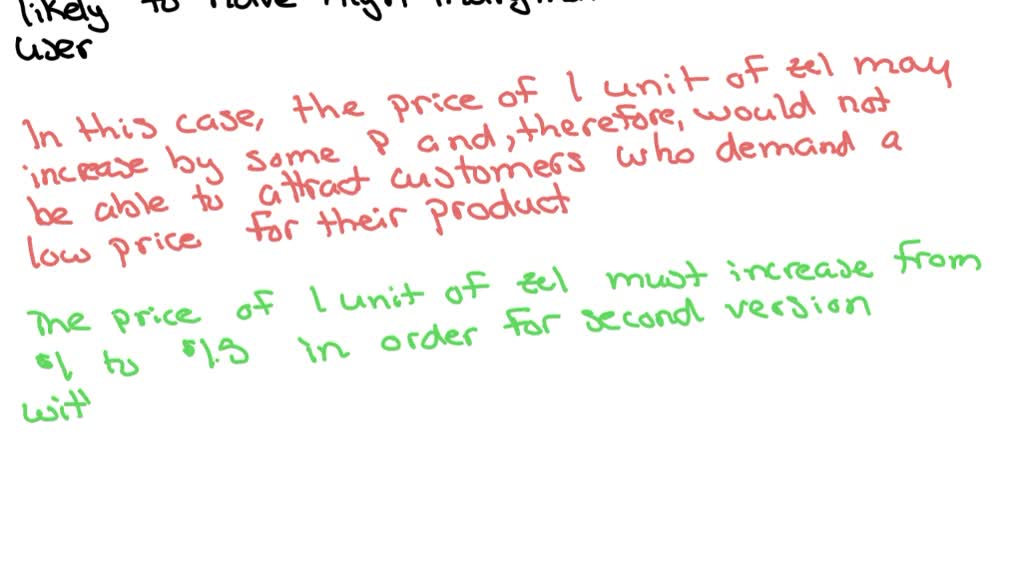 likely to have high
user
In this case, the price of 1 unit of zel may
increase by some P and, therefore, would not
be able to attract customers who demand a
low price for their product
The price of 1 unit of zel must increase from
$1 to $1.9 in order for second version
wit